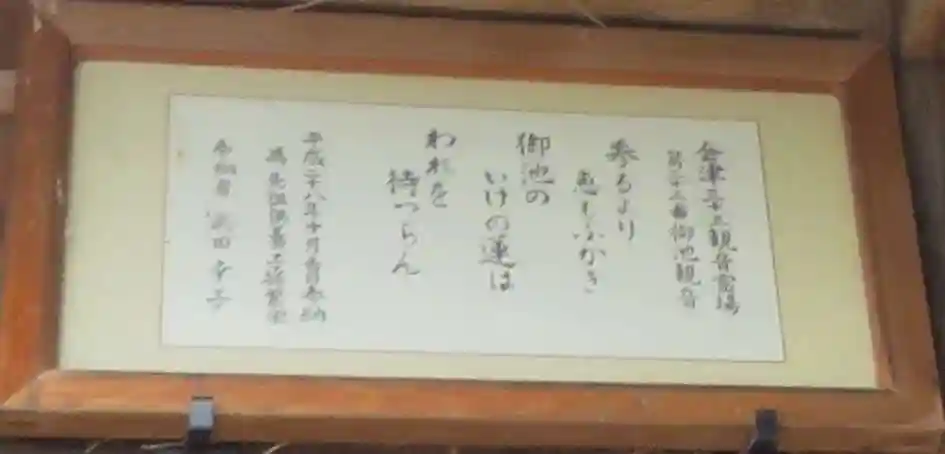 会津三十三観音霊場
第二十三番御池観音
参るより
恵もふかき
御池の
いけの蓮は
われを
待つらん
平成二十八年十月吉日奉納
為先祖供養子孫繁栄
奉納者 田幸子